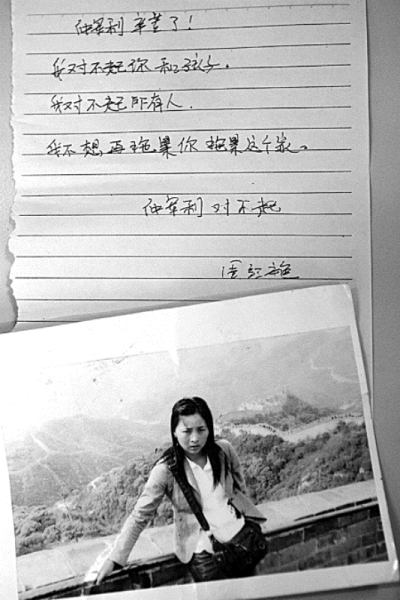 仲军利辛苦了！
我对不起你和孩子。
我对不起所有人.
我不想再拖累你拖累这个家。
仲军利对不起
周红艳